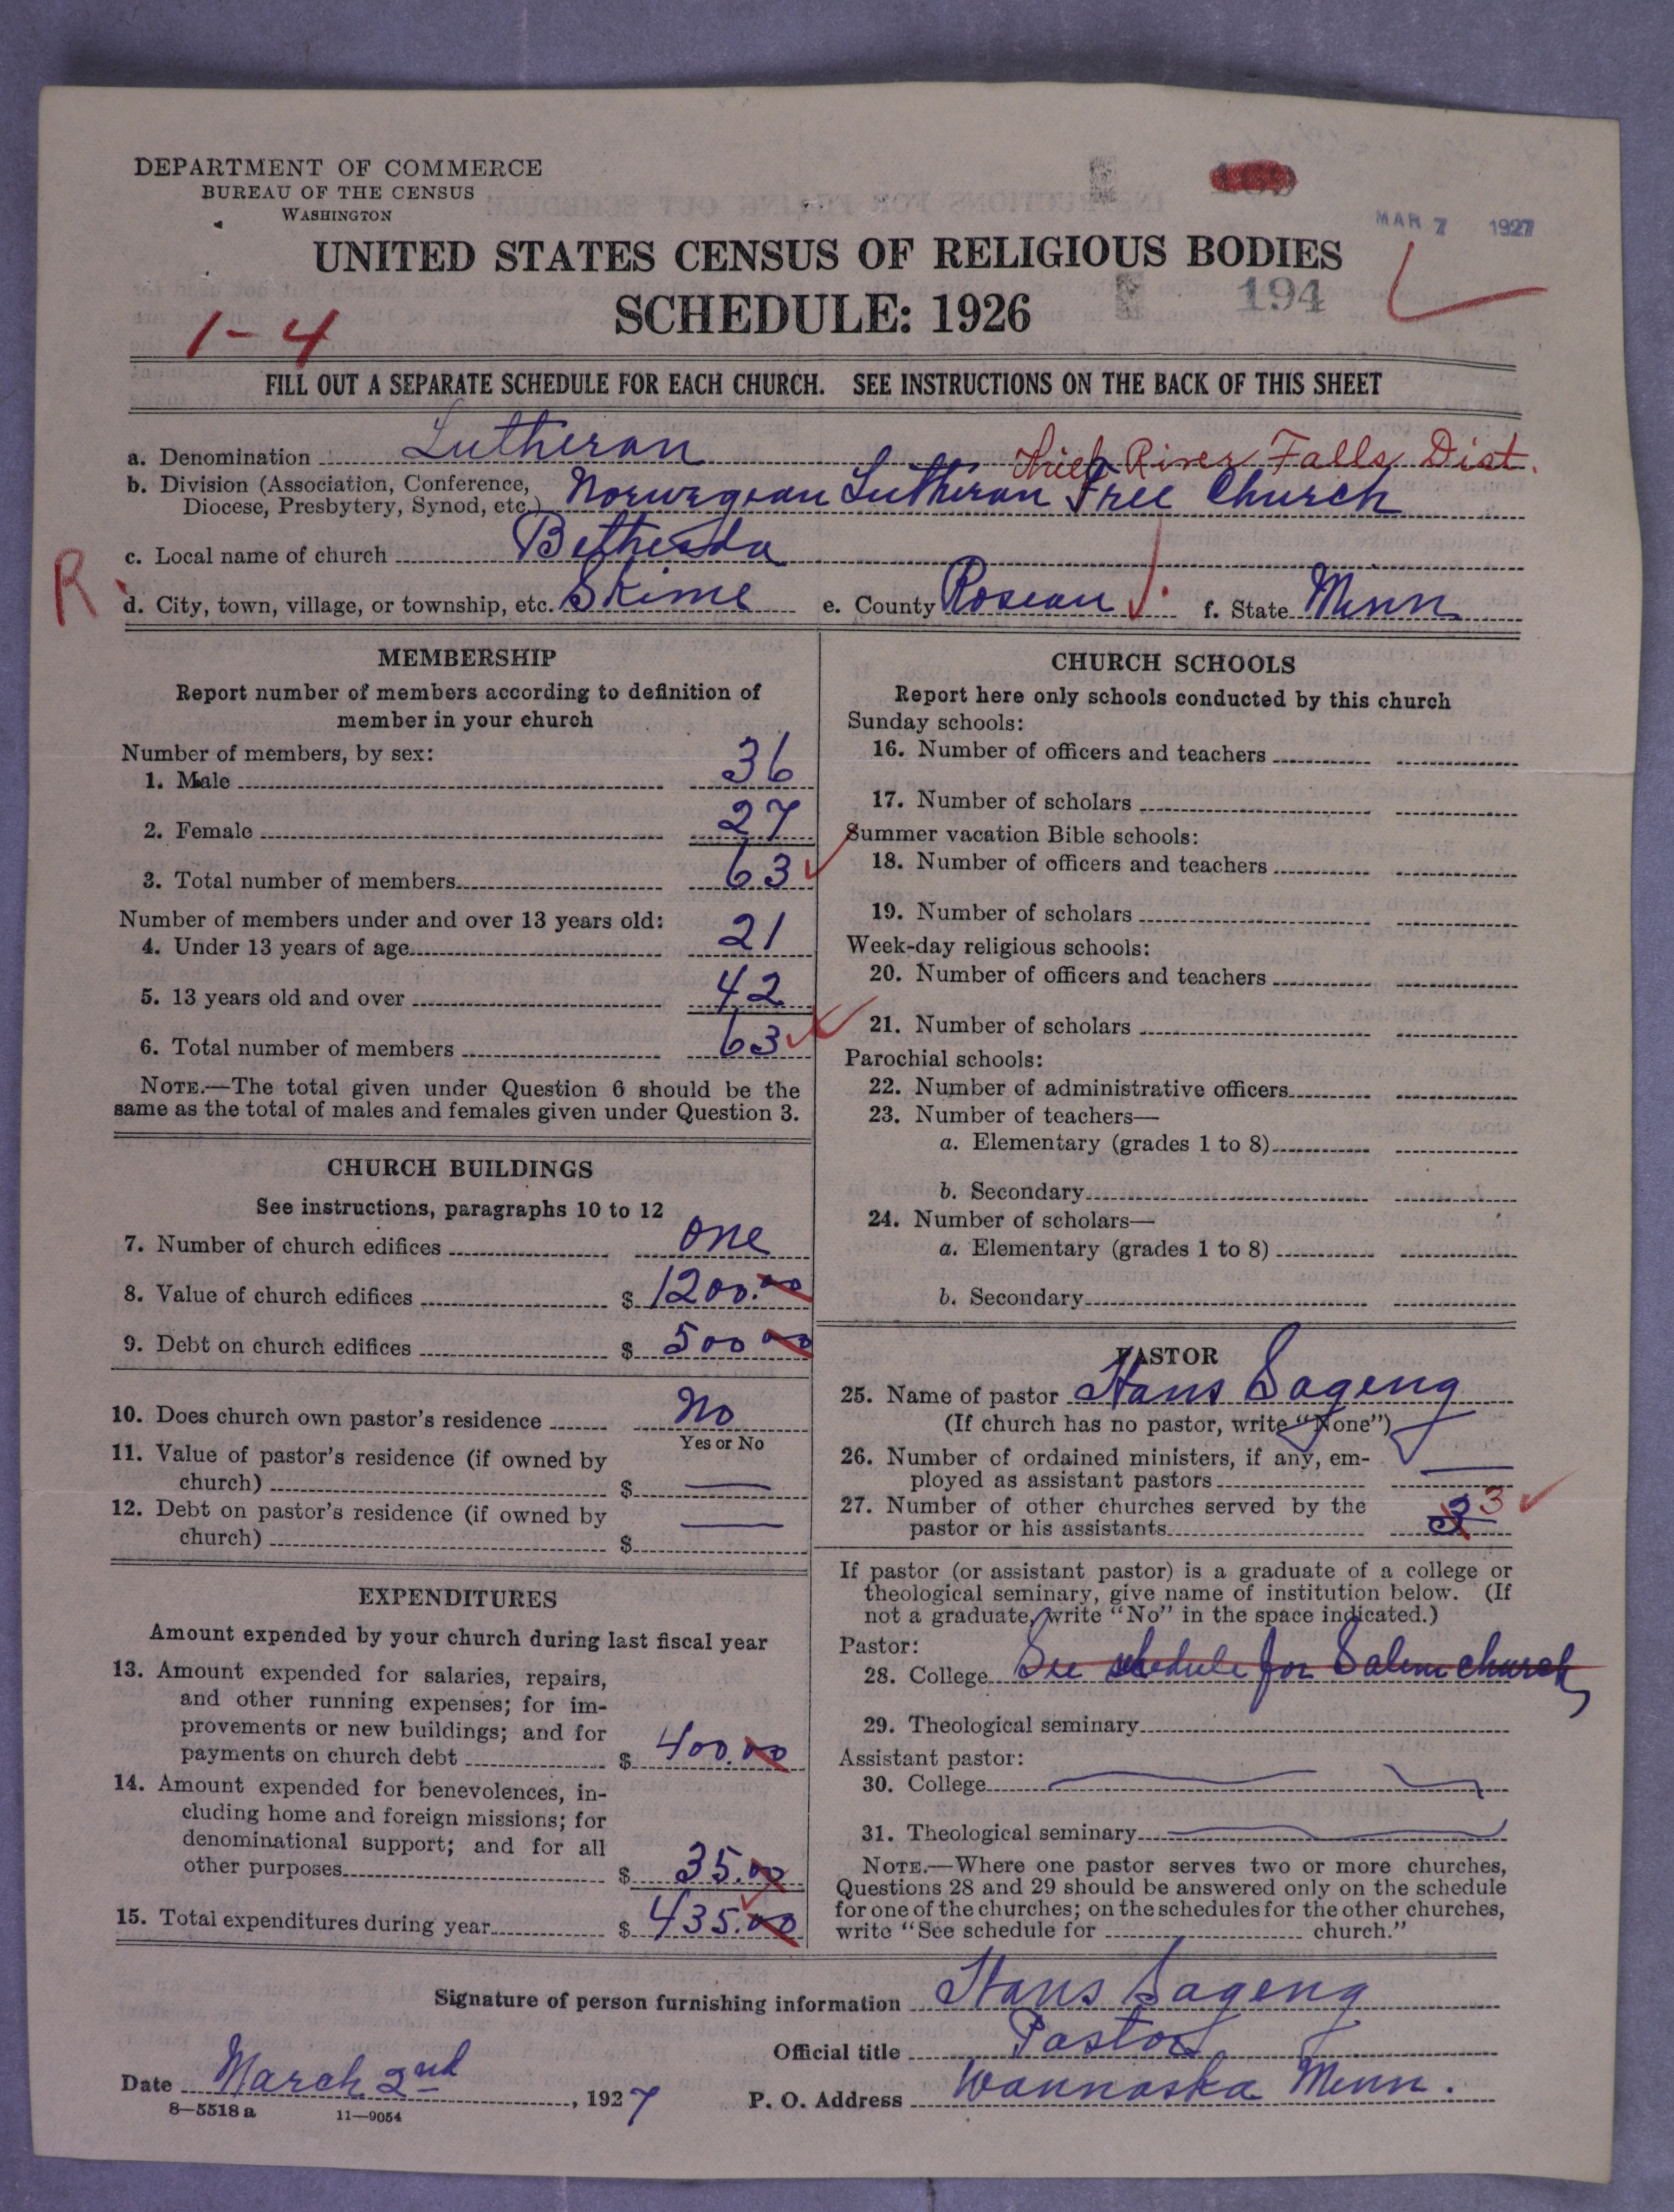 DEPARTMENT OF COMMERCE
BUREAU OF THE CENSUS
WASHINGTON
MAR 7 1927
UNITED STATES CENSUS OF RELIGIOUS BODIES
SCHEDULE: 1926
194
1-4
FILL OUT A SEPARATE SCHEDULE FOR EACH CHURCH. SEE INSTRUCTIONS ON THE BACK OF THIS SHEET
a. Denomination Lutheran
River Falls Dist.
b. Division (Association, Conference, Diocese, Presbytery, Synod, etc.) Norwegian Lutheran Free Church
c. Local name of church Bethesda
R
d. City, town, village, or township, etc. Skime e. County Roseau f. State Minn
MEMBERSHIP
Report number of members according to definition of
member in your church
Number of members, by sex:
1. Male 36
2. Female 27
3. Total number of members 63
Number of members under and over 13 years old:
4. Under 13 years of age 21
5. 13 years old and over 42
6. Total number of members 63
NOTE.—The total given under Question 6 should be the
same as the total of males and females given under Question 3.
CHURCH BUILDINGS
See instructions, paragraphs 10 to 12
7. Number of church edifices one
8. Value of church edifices $ 1200.00
9. Debt on church edifices $ 500 00
10. Does church own pastor's residence No
Yes or No
11. Value of pastor's residence (if owned by
church) $ —
12. Debt on pastor's residence (if owned by
church) $ —
EXPENDITURES
Amount expended by your church during last fiscal year
13. Amount expended for salaries, repairs,
and other running expenses; for im-
provements or new buildings; and for
payments on church debt $ 400.00
14. Amount expended for benevolences, in-
cluding home and foreign missions; for
denominational support; and for all
other purposes $ 35.00
15. Total expenditures during year $ 435.00
CHURCH SCHOOLS
Report here only schools conducted by this church
Sunday schools:
16. Number of officers and teachers
17. Number of scholars
Summer vacation Bible schools:
18. Number of officers and teachers
19. Number of scholars
Week-day religious schools:
20. Number of officers and teachers
21. Number of scholars
Parochial schools:
22. Number of administrative officers
23. Number of teachers—
a. Elementary (grades 1 to 8)
b. Secondary
24. Number of scholars—
a. Elementary (grades 1 to 8)
b. Secondary
PASTOR
25. Name of pastor Hans Sageng
(If church has no pastor, write "None")
26. Number of ordained ministers, if any, em-
ployed as assistant pastors —
27. Number of other churches served by the
pastor or his assistants 3
If pastor (or assistant pastor) is a graduate of a college or
theological seminary, give name of institution below. (If
not a graduate, write "No" in the space indicated.)
Pastor:
28. College See schedule for Salem church
29. Theological seminary
Assistant pastor:
30. College
31. Theological seminary
NOTE.—Where one pastor serves two or more churches,
Questions 28 and 29 should be answered only on the schedule
for one of the churches; on the schedules for the other churches,
write "See schedule for church."
Signature of person furnishing information Hans Sageng
Official title Pastor
Date March 2nd, 1927 P. O. Address Wannaska Minn.
8—5518 a 11—9054